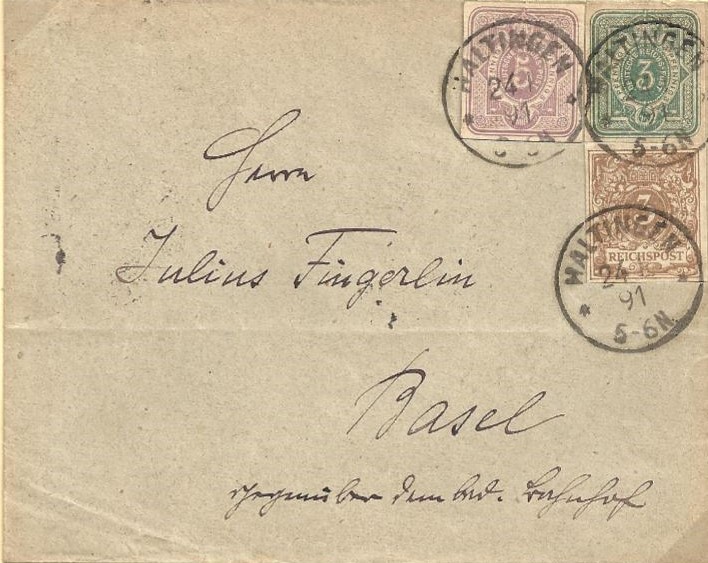 HALTINGEN
24
91
5
HALTINGEN
3
5-6N
3
REICHSPOST
HALTINGEN
24
91
5-6N
Herrn
Julius Fingerlin
Basel
gegenüber dem bad. Bahnhof